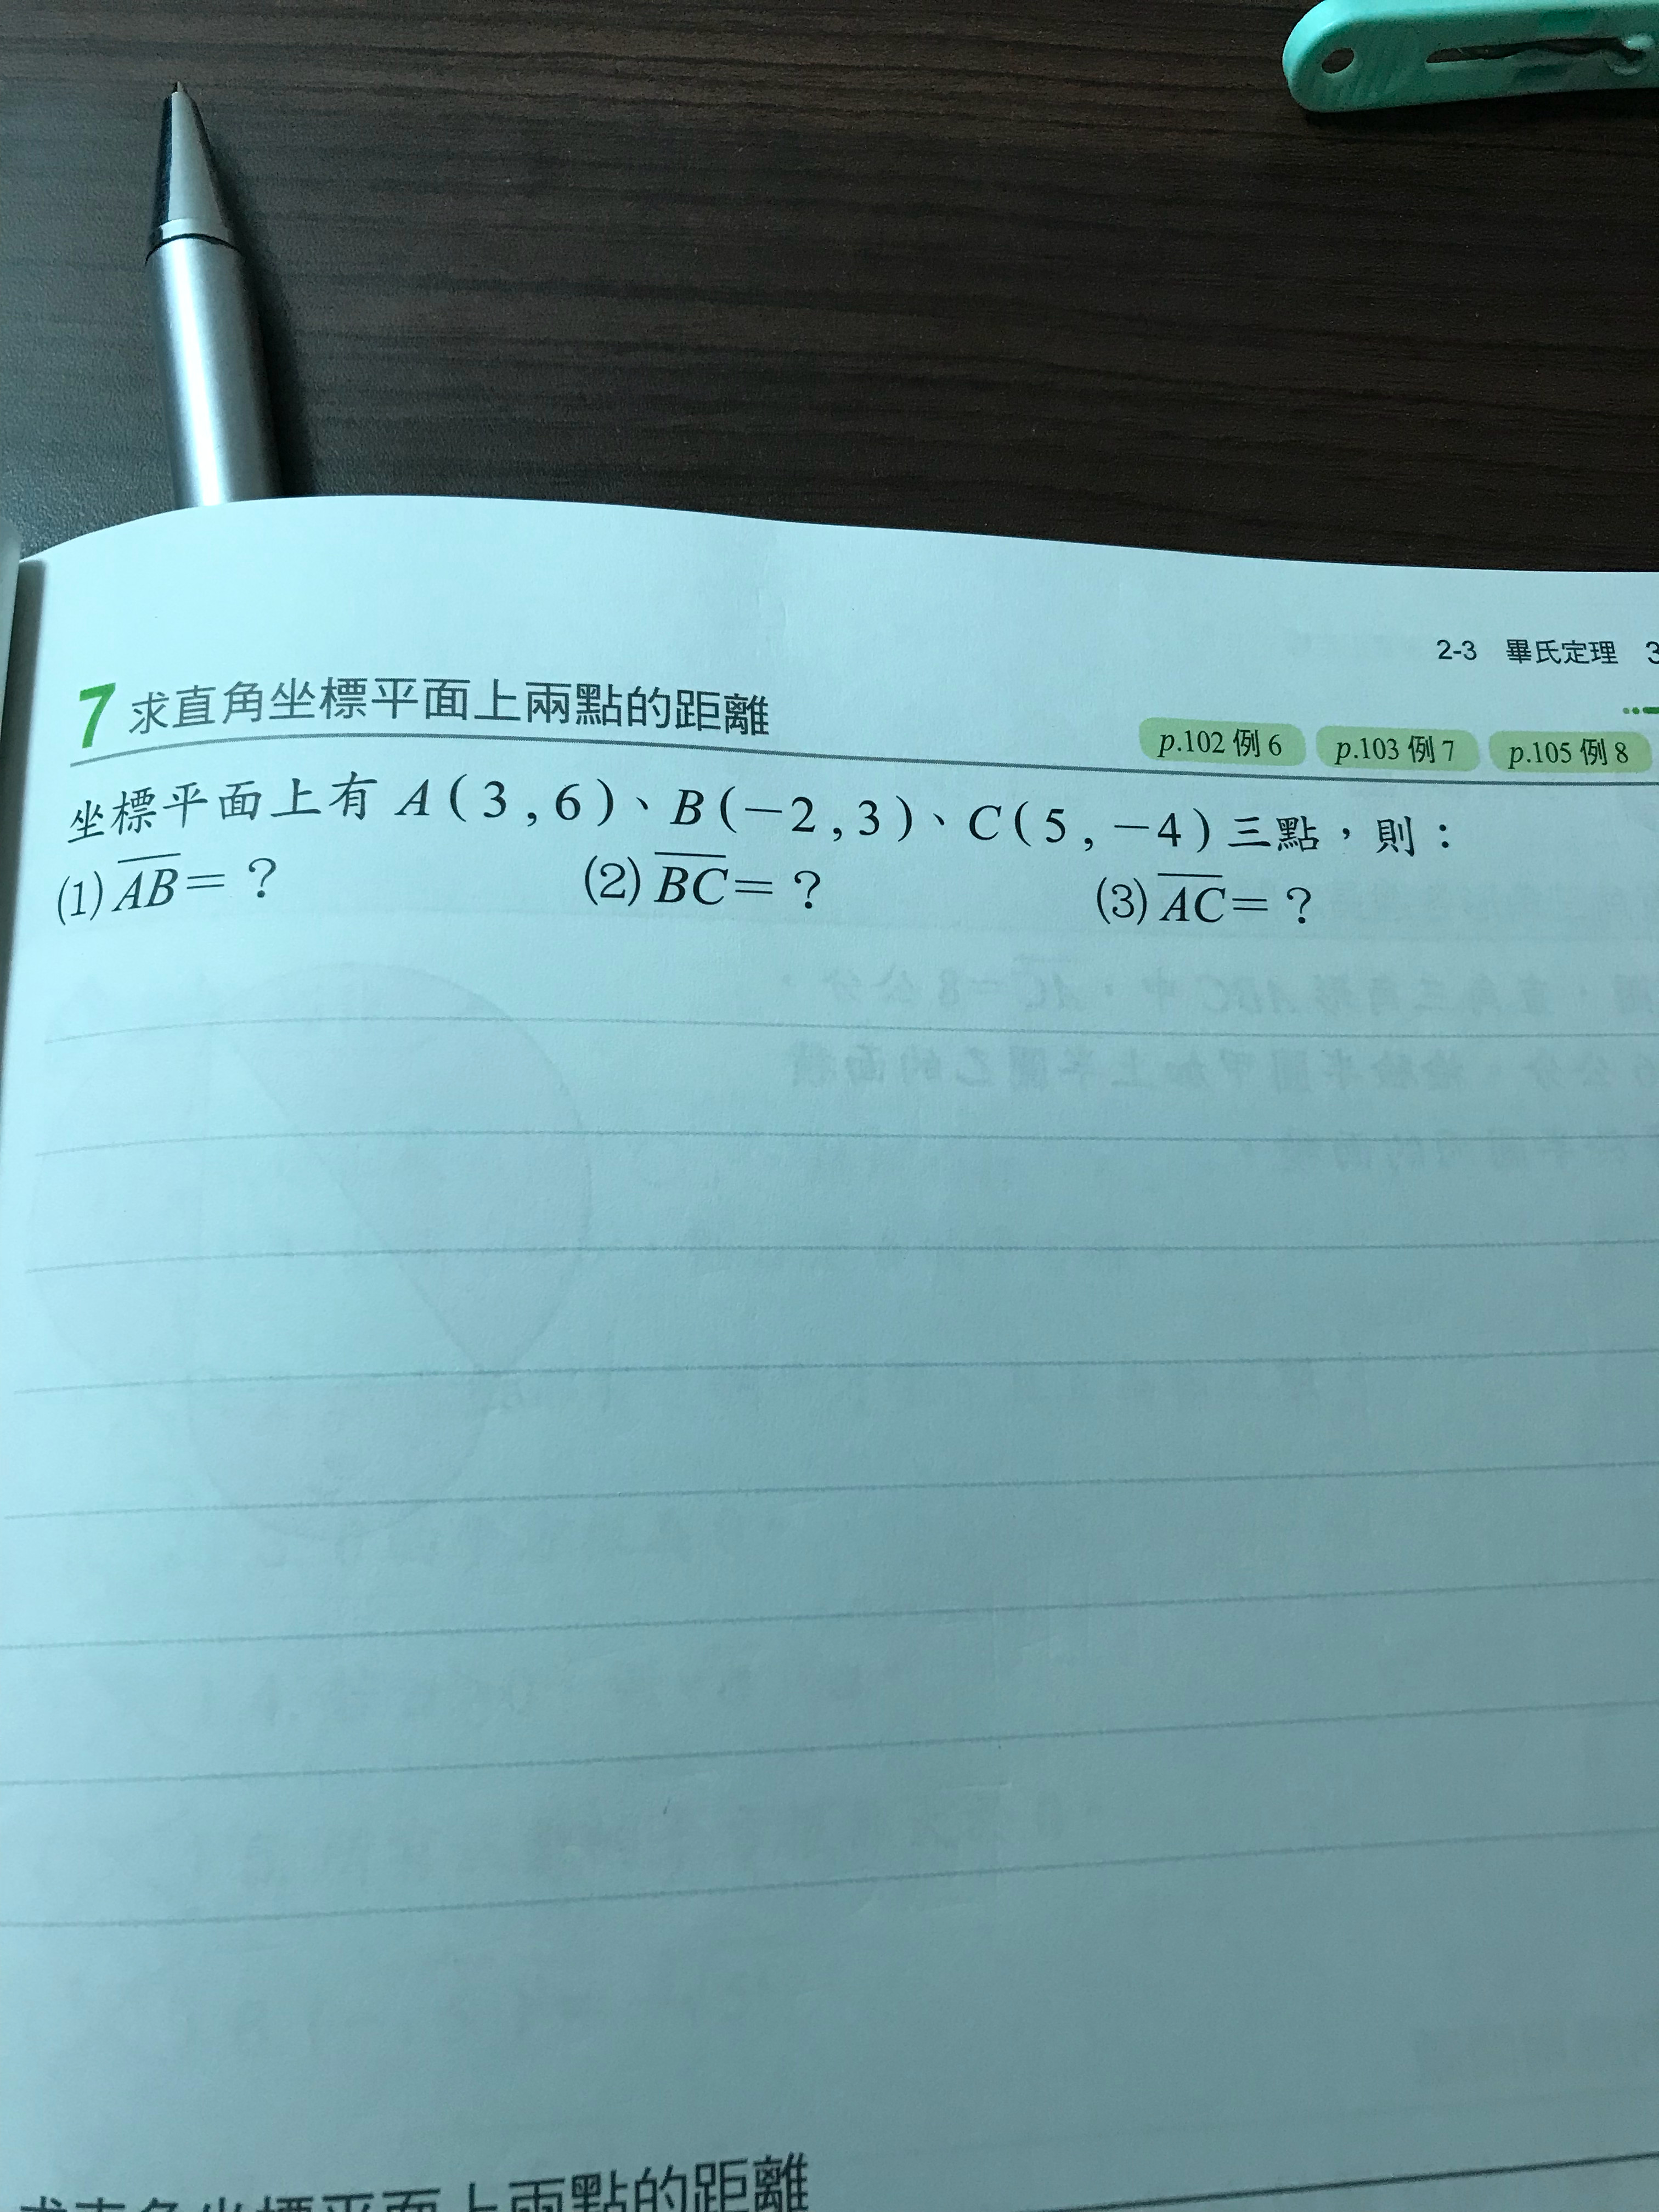 2-3 畢氏定理 3
7 求直角坐標平面上兩點的距離
p.102 例 6 p.103 例 7 p.105 例 8
坐標平面上有 A(3,6)、B(−2,3)、C(5,−4)三點,則:
(1) AB=? (2) BC=? (3) AC=?
求直角坐標平面上兩點的距離